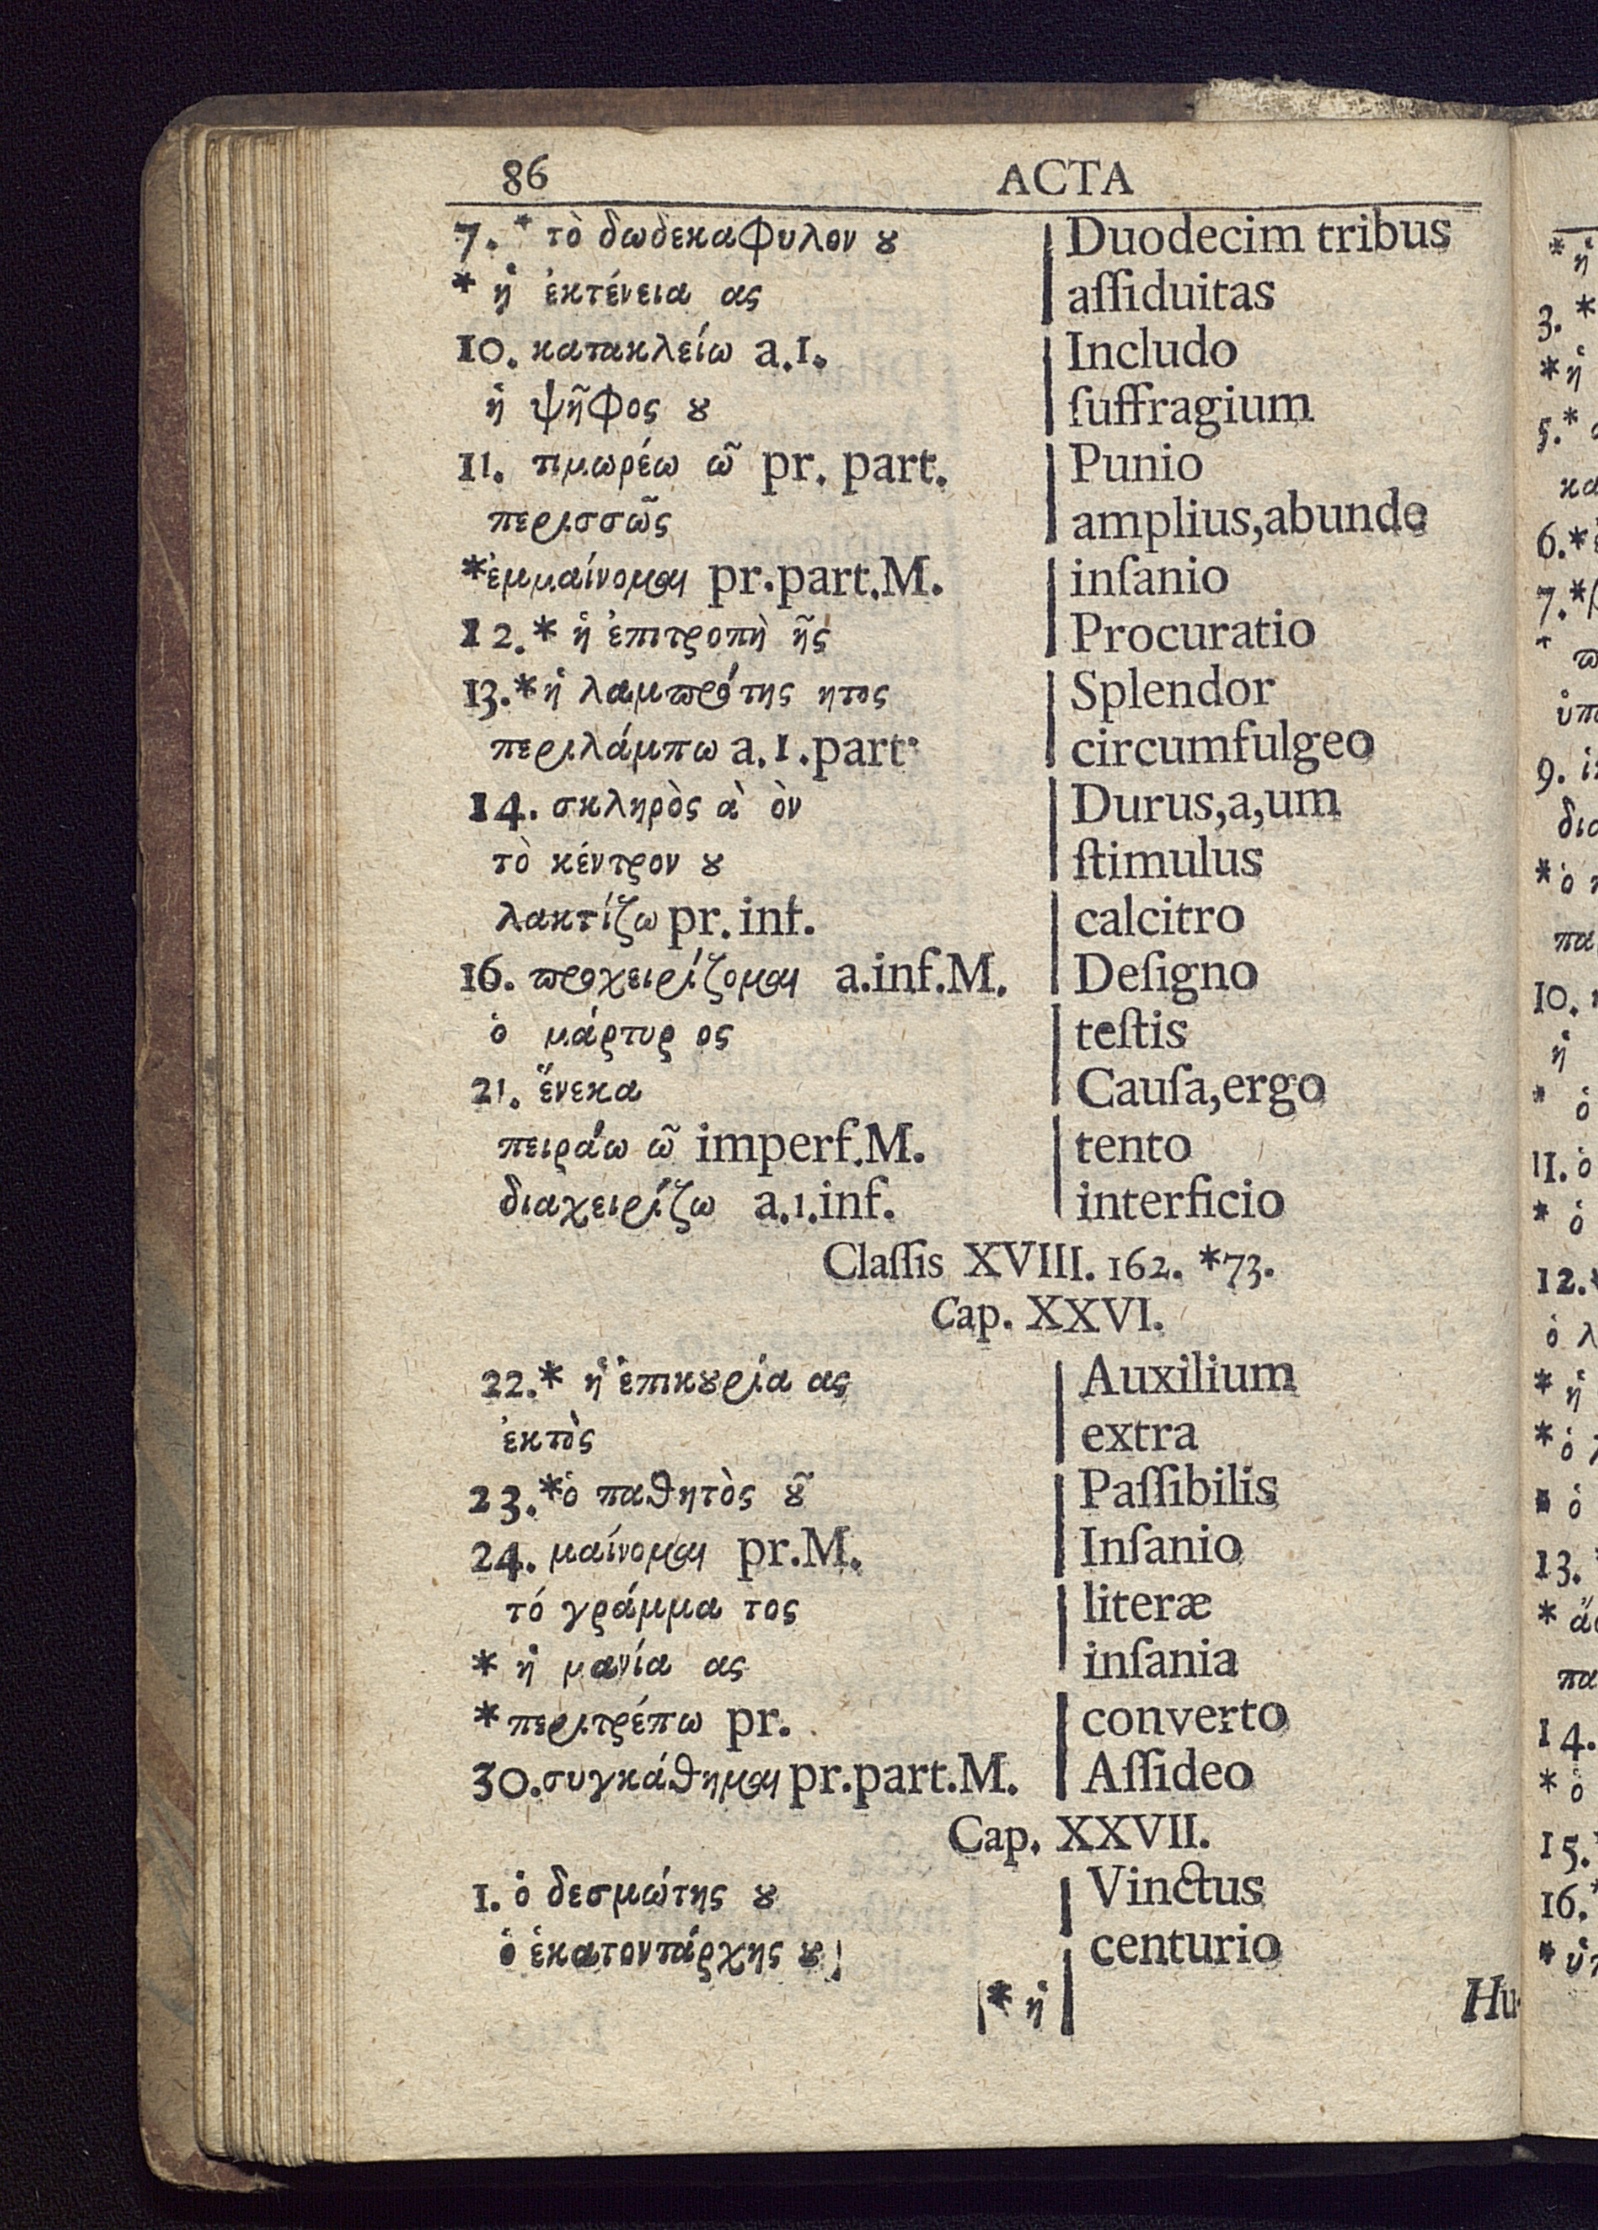 86 ACTA
7. * τὸ δωδεκαφυλον ȣ | Duodecim tribus
* ἡ ἐκτένεια ας | aſſiduitas
10. κατακλείω a.1. | Includo
ἡ ψῆφος ȣ | ſuffragium
11. τιμωρέω ῶ pr. part. | Punio
περισσῶς | amplius,abunde
*ἐμμαίνομαι pr.part.M. | inſanio
12.* ἡ ἐπιτροπὴ ῆς | Procuratio
13.* ἡ λαμπρότης ητος | Splendor
περιλάμπω a.1.part. | circumfulgeo
14. σκληρὸς ὰ ὸν | Durus,a,um
τὸ κέντρον ȣ | ſtimulus
λακτίζω pr. inf. | calcitro
16. προχειρίζομαι a.inf.M. | Deſigno
ὁ μάρτυρ ος | teſtis
21. ἕνεκα | Cauſa,ergo
πειράω ῶ imperf.M. | tento
διαχειρίζω a.1.inf. | interficio
Claſſis XVIII. 162. *73.
Cap. XXVI.
22.* ἡ ἐπικȣρία ας | Auxilium
ἐκτὸς | extra
23.*ὁ παθητὸς ȣ͂ | Paſſibilis
24. μαίνομαι pr.M. | Inſanio
τό γράμμα τος | literæ
* ἡ μανία ας | inſania
* περιτρέπω pr. | converto
30.συγκάθημαι pr.part.M. | Aſſideo
Cap. XXVII.
1. ὁ δεσμώτης ȣ | Vinctus
ὁ ἑκατοντάρχης ȣ | centurio
* ἡ | Hu-